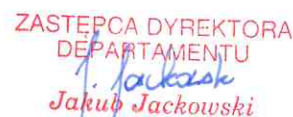 ZASTĘPCA DYREKTORA
DEPARTAMENTU
J. Jackowski
Jakub Jackowski